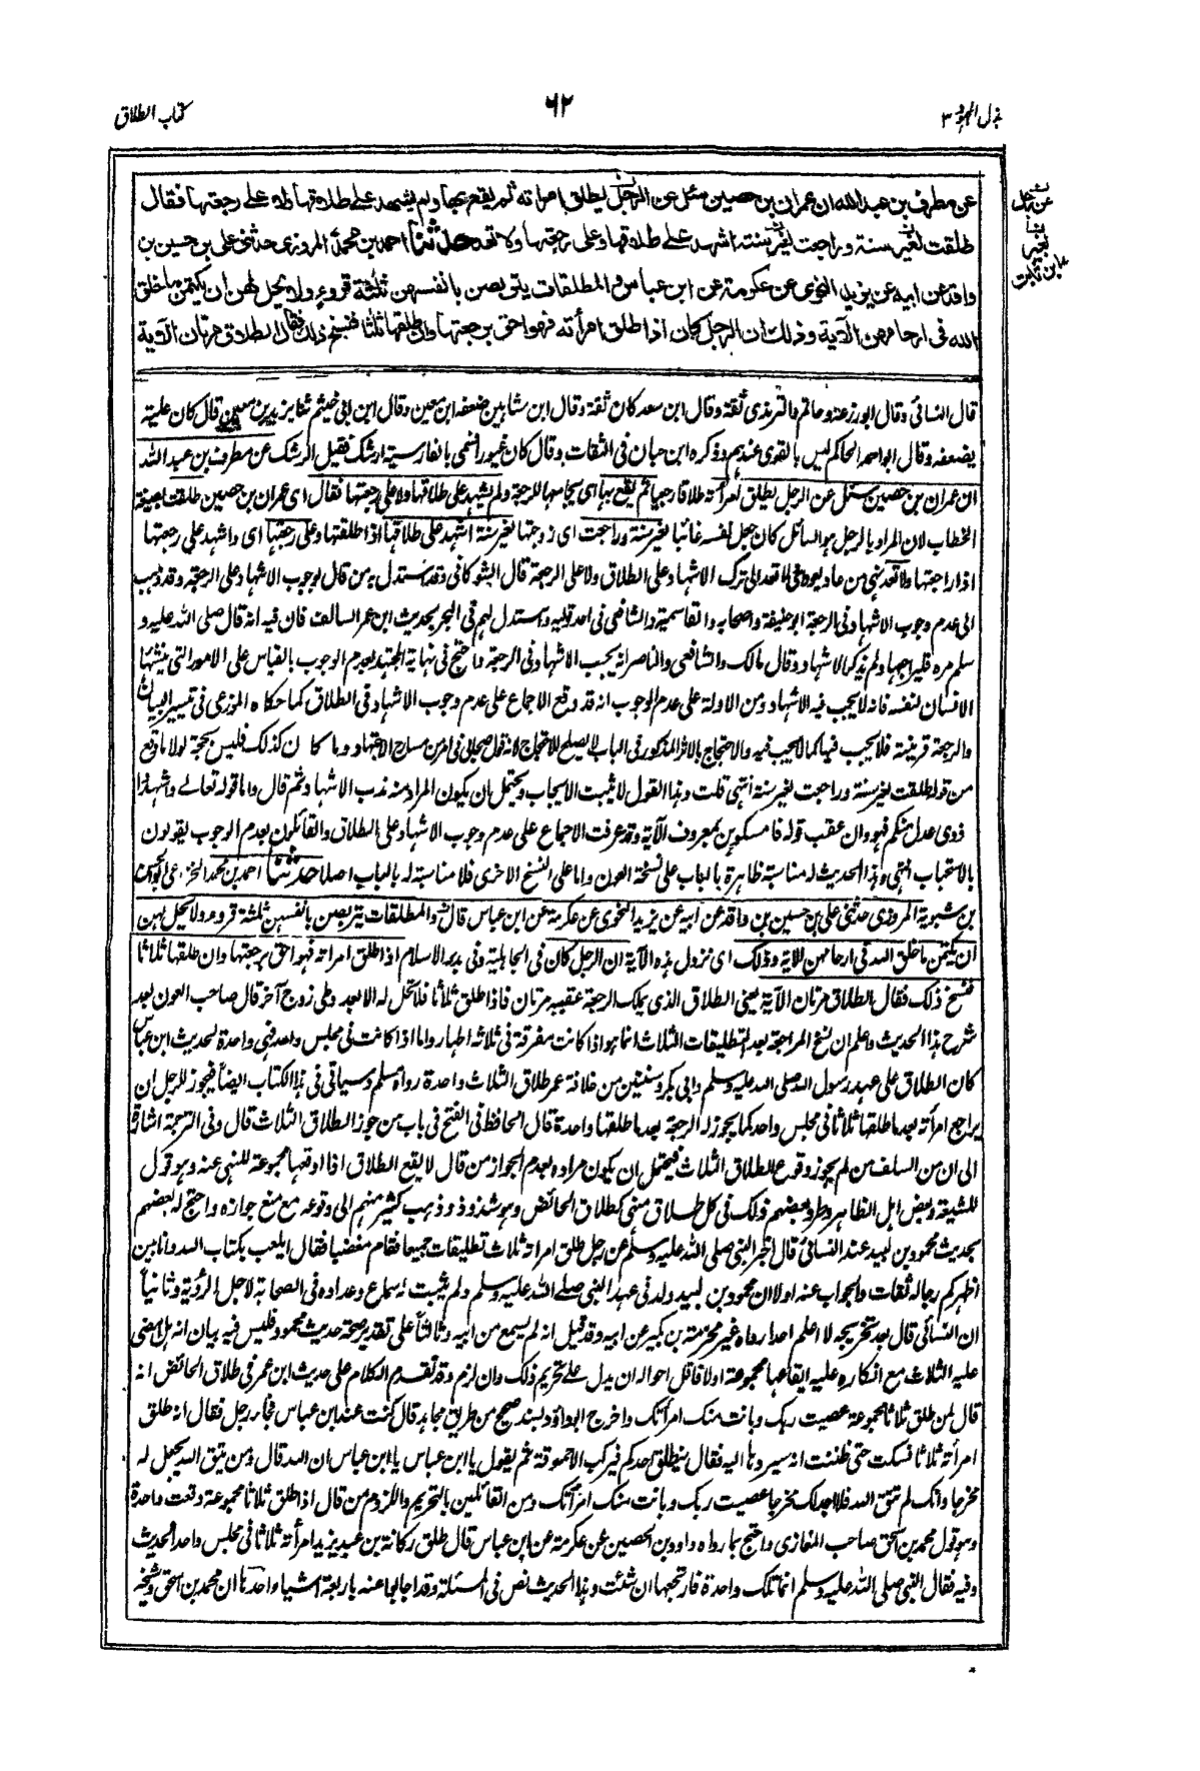 بذل المجهود ٣
٦٢
كتاب الطلاق
عن مطرف بن عبدالله ان عمران بن حصين سئل عن الرجل يطلق امرأته ثم يقع بها ولم يشهد على طلاقها ولا على رجعتها فقال
طلقت لغير سنة وراجعت لغير سنة اشهد على طلاقها وعلى رجعتها ولا تعد حدثنا احمد بن محمد المروزى حدثنى على بن حسين بن
واقد عن ابيه عن يزيد النحوى عن عكرمة عن ابن عباس والمطلقات يتربصن بانفسهن ثلثة قروء ولا يحل لهن ان يكتمن ما خلق
الله فى ارحامهن الآية وذلك ان الرجل كان اذا طلق امرأته فهو احق برجعتها وان طلقها ثلثا فنسخ ذلك فقال الطلاق مرتان الآية
قال النسائى وقال ابو زرعة وحاتم والترمذى ثقة وقال ابن سعد كان ثقة وقال ابن شاهين ضعفه ابن معين وقال ابن ابى خيثم عن يزيد بن معين قال كان علية
يضعفه وقال ابو احمد الحاكم ليس بالقوى عندهم وذكره ابن حبان فى الثقات وقال كان غيورا فسمى بالفارسية ارشك فقيل الرشك عن مطرف بن عبد الله
ان عمران بن حصين سئل عن الرجل يطلق امرأته طلاقا رجعيا ثم يقع بها اى يجامعها للرجعة ولم يشهد على طلاقها ولا على رجعتها فقال اى عمران بن حصين طلقت بصيغة
الخطاب لان المراد بالرجل هو السائل كان جعل نفسه غائبا لغير سنة وراجعت اى زوجتها لغير سنة اشهد على طلاقها اذا طلقتها وعلى رجعتها اى واشهد على رجعتها
اذا راجعتها ولا تعد نهى من عاد يعود فى لا تعد الى ترك الاشهاد على الطلاق ولا على الرجعة قال الشوكانى وقد استدل به من قال بوجوب الاشهاد على الرجعة وقد ذهب
الى عدم وجوب الاشهاد فى الرجعة ابو حنيفة واصحابه والقاسمية والشافعى فى احد قوليه واستدل لهم فى البحر بحديث ابن عمر السالف فان فيه انه قال صلى الله عليه و
سلم مره فليراجعها ولم يذكر الاشهاد وقال مالك والشافعى والناصر انه يجب الاشهاد فى الرجعة واحتج فى نهاية المجتهد بعدم الوجوب بالقياس على الامور التى ينشئها
الانسان لنفسه فانه لا يجب فيه الاشهاد ومن الادلة على عدم الوجوب انه قد وقع الاجماع على عدم وجوب الاشهاد فى الطلاق كما حكاه الموزعى فى تيسير البيان
والرجعة قرينته فلا يجب فيها كما لا يجب فيه والاحتجاج بالاثر المذكور فى الباب لا يصلح للاحتجاج لانه قول صحابى فى امر من مسارح الاجتهاد وما كان كذلك فليس بحجة لولا ما وقع
من قوله طلقت لغير سنة وراجعت لغير سنة انتهى قلت وهذا القول لا يثبت الايجاب ويحتمل ان يكون المراد منه ندب الاشهاد ثم قال واما قوله تعالى واشهدوا
ذوى عدل منكم فهو وان عقب قوله فامسكوهن بمعروف الآية وقد عرفت الاجماع على عدم وجوب الاشهاد على الطلاق والقائلون بعدم الوجوب يقولون
بالاستحباب انتهى وهذا الحديث له مناسبة ظاهرة بالباب على نسخة العون واما على النسخ الاخرى فلا مناسبة له بالباب اصلا حدثنا احمد بن محمد الخزاعى ابو الحسن
بن شبوية المروزى حدثنى على بن حسين بن واقد عن ابيه عن يزيد النحوى عن عكرمة عن ابن عباس قال والمطلقات يتربصن بانفسهن ثلثة قروء ولا يحل لهن
ان يكتمن ما خلق الله فى ارحامهن الاية وذلك اى نزول هذه الآية ان الرجل كان فى الجاهلية وفى بدء الاسلام اذا طلق امرأته فهو احق برجعتها وان طلقها ثلاثا
فنسخ ذلك فقال الطلاق مرتان الآية يعنى الطلاق الذى يملك الرجعة عقيبه مرتان فاذا طلق ثلاثا فلا تحل له الا بعد وطى زوج آخر قال صاحب العون بعد
شرح هذا الحديث واعلم ان نسخ المراجعة بعد التطليقات الثلاث انما هو اذا كانت مفرقة فى ثلاثة اطهار واما اذا كانت فى مجلس واحد فهى واحدة لحديث ابن عباس
كان الطلاق على عهد رسول الله صلى الله عليه وسلم وابى بكر وسنتين من خلافة عمر طلاق الثلاث واحدة رواه مسلم وسياتى فى هذا الكتاب ايضا فيجوز للرجل ان
يراجع امرأته بعد ما طلقها ثلاثا فى مجلس واحد كما يجوز له الرجعة بعد ما طلقها واحدة قال الحافظ فى الفتح فى باب من جوز الطلاق الثلاث قال وفى الترجمة اشارة
الى ان من السلف من لم يجوز وقوع الطلاق الثلاث فيحتمل ان يكون مراده بعدم الجواز من قال لا يقع الطلاق اذا اوقعها مجموعة للنهى عنه وهو قول
للشيعة وبعض اهل الظاهر وطرد بعضهم ذلك فى كل طلاق منهى كطلاق الحائض وهو شذوذ وذهب كثير منهم الى وقوعه مع منع جوازه واحتج له بعضهم
بحديث محمود بن لبيد عند النسائى قال اخبر النبى صلى الله عليه وسلم عن رجل طلق امرأته ثلاث تطليقات جميعا فقام مغضبا فقال ايلعب بكتاب الله وانا بين
اظهركم رجاله ثقات والجواب عنه اولا ان محمود بن لبيد ولد فى عهد النبى صلى الله عليه وسلم ولم يثبت له سماع وعداده فى الصحابة لاجل الرؤية وثانيا
ان النسائى قال بعد تخريجه لا اعلم احدا رواه غير مخرمة بن بكير عن ابيه وقد قيل انه لم يسمع من ابيه وثالثا على تقدير صحة حديث محمود فليس فيه بيان انه هل امضى
عليه الثلاث مع انكاره عليه ايقاعها مجموعة اولا فاقل احواله ان يدل على تحريم ذلك وان لزم وقد تقدم الكلام على حديث ابن عمر فى طلاق الحائض انه
قال لمن طلق ثلاثا مجموعة عصيت ربك وبانت منك امرأتك واخرج ابو داؤد بسند صحيح من طريق مجاهد قال كنت عند ابن عباس فجاءه رجل فقال انه طلق
امرأته ثلاثا فسكت حتى ظننت انه سيردها اليه فقال ينطلق احدكم فيركب الاحموقة ثم يقول يا ابن عباس يا ابن عباس ان الله قال ومن يتق الله يجعل له
مخرجا وانك لم تتق الله فلا اجد لك مخرجا عصيت ربك وبانت منك امرأتك ومن القائلين بالتحريم واللزوم من قال اذا طلق ثلاثا مجموعة وقعت واحدة
وهو قول محمد بن اسحق صاحب المغازى واحتج بما رواه داود بن الحصين عن عكرمة عن ابن عباس قال طلق ركانة بن عبد يزيد امرأته ثلاثا فى مجلس واحد الحديث
وفيه فقال النبى صلى الله عليه وسلم انما تلك واحدة فارتجعها ان شئت وهذا الحديث نص فى المسئلة وقد اجابوا عنه باربعة اشياء احدها ان محمد بن اسحق وشيخه